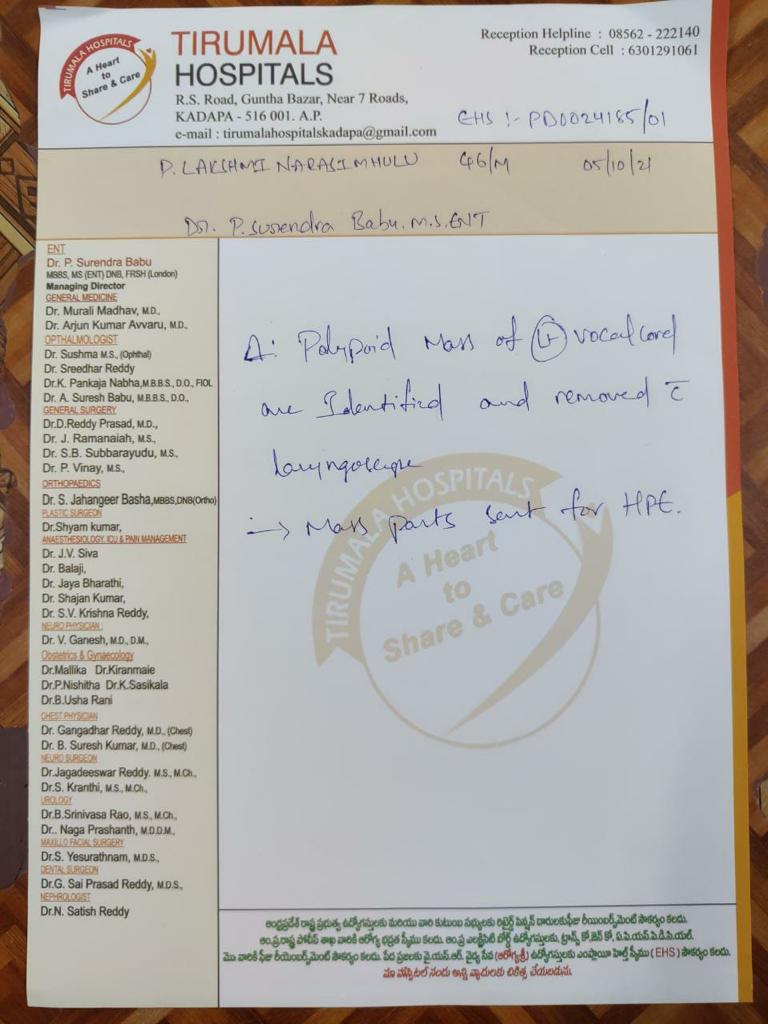 TIRUMALA HOSPITALS
A Heart
to
Share & Care
TIRUMALA
HOSPITALS
R.S. Road, Guntha Bazar, Near 7 Roads,
KADAPA - 516 001. A.P.
e-mail : tirumalahospitalskadapa@gmail.com
Reception Helpline : 08562 - 222140
Reception Cell : 6301291061
EHS :- PD0024185/01
P. LAKSHMI NARASIMHULU 46/M 05/10/21
Dr. P. Surendra Babu. M.S. ENT
ENT
Dr. P. Surendra Babu
MBBS, MS (ENT) DNB, FRSH (London)
Managing Director
GENERAL MEDICINE
Dr. Murali Madhav, M.D.,
Dr. Arjun Kumar Avvaru, M.D.,
OPTHALMOLOGIST
Dr. Sushma M.S., (Ophthal)
Dr. Sreedhar Reddy
Dr.K. Pankaja Nabha, M.B.B.S., D.O., FIOL
Dr. A. Suresh Babu, M.B.B.S., D.O.,
GENERAL SURGERY
Dr.D.Reddy Prasad, M.D.,
Dr. J. Ramanaiah, M.S.,
Dr. S.B. Subbarayudu, M.S.,
Dr. P. Vinay, M.S.,
ORTHOPAEDICS
Dr. S. Jahangeer Basha, MBBS,DNB(Ortho)
PLASTIC SURGEON
Dr.Shyam kumar,
ANAESTHESIOLOGY, ICU & PAIN MANAGEMENT
Dr. J.V. Siva
Dr. Balaji,
Dr. Jaya Bharathi,
Dr. Shajan Kumar,
Dr. S.V. Krishna Reddy,
NEURO PHYSICIAN :
Dr. V. Ganesh, M.D., D.M.,
Obstetrics & Gynaecology
Dr.Mallika Dr.Kiranmaie
Dr.P.Nishitha Dr.K.Sasikala
Dr.B.Usha Rani
CHEST PHYSICIAN
Dr. Gangadhar Reddy, M.D., (Chest)
Dr. B. Suresh Kumar, M.D., (Chest)
NEURO SURGEON
Dr.Jagadeeswar Reddy. M.S., M.Ch.,
Dr.S. Kranthi, M.S., M.Ch.,
UROLOGY
Dr.B.Srinivasa Rao, M.S., M.Ch.,
Dr.. Naga Prashanth, M.D.D.M.,
MAXILLO FACIAL SURGERY
Dr.S. Yesurathnam, M.D.S.,
DENTAL SURGEON
Dr.G. Sai Prasad Reddy, M.D.S.,
NEPHROLOGIST
Dr.N. Satish Reddy
Polypoid Mass of vocal cord
are Identified and removed c̄
Laryngoscope
→ Mass parts sent for HPE.
TIRUMALA HOSPITALS
A Heart
to
Share & Care
ఆంధ్రప్రదేశ్ రాష్ట్ర ప్రభుత్వ ఉద్యోగస్తులకు మరియు వారి కుటుంబ సభ్యులకు రిటైర్డ్ పెన్షన్ దారులకుఫీజు రీయింబర్స్‌మెంట్ సౌకర్యం కలదు.
ఆం.ప్ర.రాష్ట్ర పోలీస్ శాఖ వారికి ఆరోగ్య భద్రత స్కీము కలదు. ఆం.ప్ర ఎలక్ట్రిసిటీ బోర్డ్ ఉద్యోగస్తులకు, ట్రాన్స్ కో,జెన్ కో, ఏ.పి.యస్.పి.డి.సి.యల్.
వారికి ఫీజు రీయింబర్స్‌మెంట్ సౌకర్యం కలదు. పేద ప్రజలకు వై.యస్.ఆర్. వైద్య సేవ (ఆరోగ్యశ్రీ) ఉద్యోగస్తులకు ఎంప్లాయీ హెల్త్ స్కీము ( EHS ) సౌకర్యం కలదు.
మా హాస్పిటల్ నందు అన్ని వ్యాధులకు చికిత్స చేయబడును.